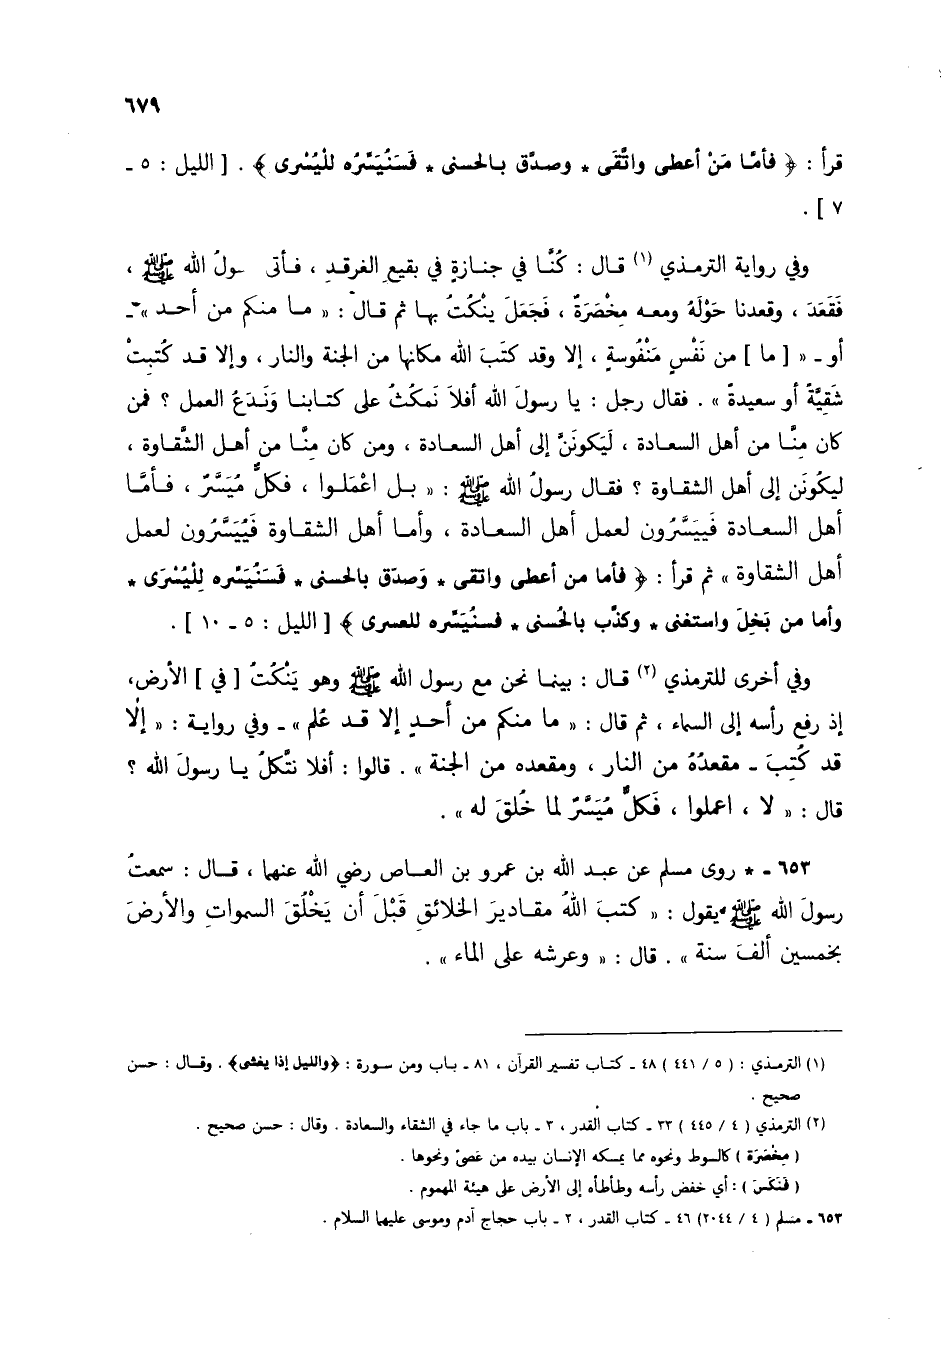 ٦٧٩
قرأ : ﴿ فأمَّا مَنْ أعطى واتَّقَى * وصدَّق بالحسنى * فَسَنُيَسِّرُه للْيُسْرى ﴾ . [ الليل : ٥ ـ
٧ ] .
وفي رواية الترمذي (١) قال : كُنَّا في جنازةٍ في بقيعِ الغرقدِ ، فأتى ـولُ الله ﷺ ،
فَقَعَدَ ، وقعدنا حَوْلَهُ ومعه مِخْصَرَةٌ ، فَجَعَلَ ينْكُتُ بها ثم قال : « ما منكم من أحد » ـ
أو ـ « [ ما ] من نَفْسٍ مَنْفُوسةٍ ، إلا وقد كتَبَ الله مكانها من الجنة والنار ، وإلا قد كُتِبتْ
شقيَّةً أو سعيدةً » . فقال رجل : يا رسولَ الله أفلاَ نَمكُثُ على كتابنا وَنَدَعُ العمل ؟ فمن
كان مِنَّا من أهل السعادة ، لَيَكونَنَّ إلى أهل السعادة ، ومن كان مِنَّا من أهل الشَّقاوة ،
ليكُونَن إلى أهل الشقاوة ؟ فقال رسولُ الله ﷺ : « بل اعْمَلوا ، فكلٌّ مُيَسَّرٌ ، فأمَّا
أهل السعادة فَييَسَّرُون لعمل أهل السعادة ، وأما أهل الشقاوة فَيُيَسَّرُون لعمل
أهل الشقاوة » ثم قرأ : ﴿ فأما من أعطى واتقى * وَصدَّق بالحسنى * فَسَنُيَسِّره لِلْيُسْرَى *
وأما من بَخِلَ واستغنى * وكذَّب بالحُسنى * فسنُيَسِّره للعسرى ﴾ [ الليل : ٥ ـ ١٠ ] .
وفي أخرى للترمذي (٢) قال : بينما نحن مع رسول الله ﷺ وهو يَنْكُتُ [ في ] الأرض،
إذ رفع رأسه إلى السماء ، ثم قال : « ما منكم من أحدٍ إلا قد عُلم » ـ وفي رواية : « إلَّا
قد كُتِبَ ـ مقعدُهُ من النار ، ومقعده من الجنة » . قالوا : أفلا نتَّكلُ يا رسولَ الله ؟
قال : « لا ، اعملوا ، فَكلٌّ مُيَسَّرٌ لما خُلقَ له » .
٦٥٣ ـ * روى مسلم عن عبد الله بن عمرو بن العاص رضي الله عنهما ، قال : سمعتُ
رسولَ الله ﷺ يقول : « كتبَ اللهُ مقاديرَ الخلائقِ قَبْلَ أن يَخْلُقَ السمواتِ والأرضَ
بخمسين ألفَ سنة » . قال : « وعرشه على الماء » .
(١) الترمذي : ( ٥ / ٤٤١ ) ٤٨ ـ كتاب تفسير القرآن ، ٨١ ـ باب ومن سورة : ﴿والليل إذا يغشى﴾ . وقال : حسن
صحيح .
(٢) الترمذي ( ٤ / ٤٤٥ ) ٣٣ ـ كتاب القدر ، ٣ ـ باب ما جاء في الشقاء والسعادة . وقال : حسن صحيح .
( مِخْصَرَة ) كالسوط ونحوه مما يمسكه الإنسان بيده من عَصىً ونحوها .
( فَنَكَسَ ) : أي خفض رأسه وطأطأه إلى الأرض على هيئة المهموم .
٦٥٣ ـ مسلم ( ٤ / ٢٠٤٤) ٤٦ ـ كتاب القدر ، ٢ ـ باب حجاج آدم وموسى عليهما السلام .